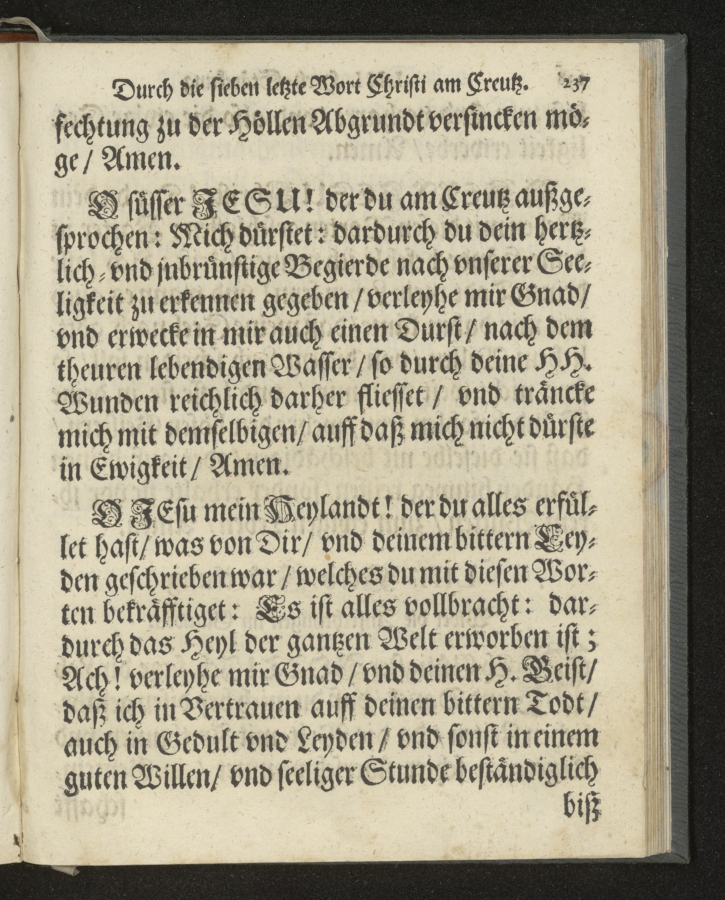 Durch die sieben letzte Wort Christi am Creutz. 237
fechtung zu der Höllen Abgrundt versincken mö-
ge / Amen.
O süsser JESU! der du am Creutz außge-
sprochen: Mich dürstet: dardurch du dein hertz-
lich- vnd jnbrünstige Begierde nach vnserer See-
ligkeit zu erkennen gegeben / verleyhe mir Gnad /
vnd erwecke in mir auch einen Durst / nach dem
theuren lebendigen Wasser / so durch deine HH.
Wunden reichlich darher fliesset / vnd träncke
mich mit demselbigen / auff daß mich nicht dürste
in Ewigkeit / Amen.
O JEsu mein Heylandt! der du alles erfül-
let hast / was von Dir / vnd deinem bittern Ley-
den geschrieben war / welches du mit diesen Wor-
ten bekräfftiget: Es ist alles vollbracht: dar-
durch das Heyl der gantzen Welt erworben ist;
Ach! verleyhe mir Gnad / vnd deinen H. Geist /
daß ich in Vertrauen auff deinen bittern Todt /
auch in Gedult vnd Leyden / vnd sonst in einem
guten Willen / vnd seeliger Stunde beständiglich
biß